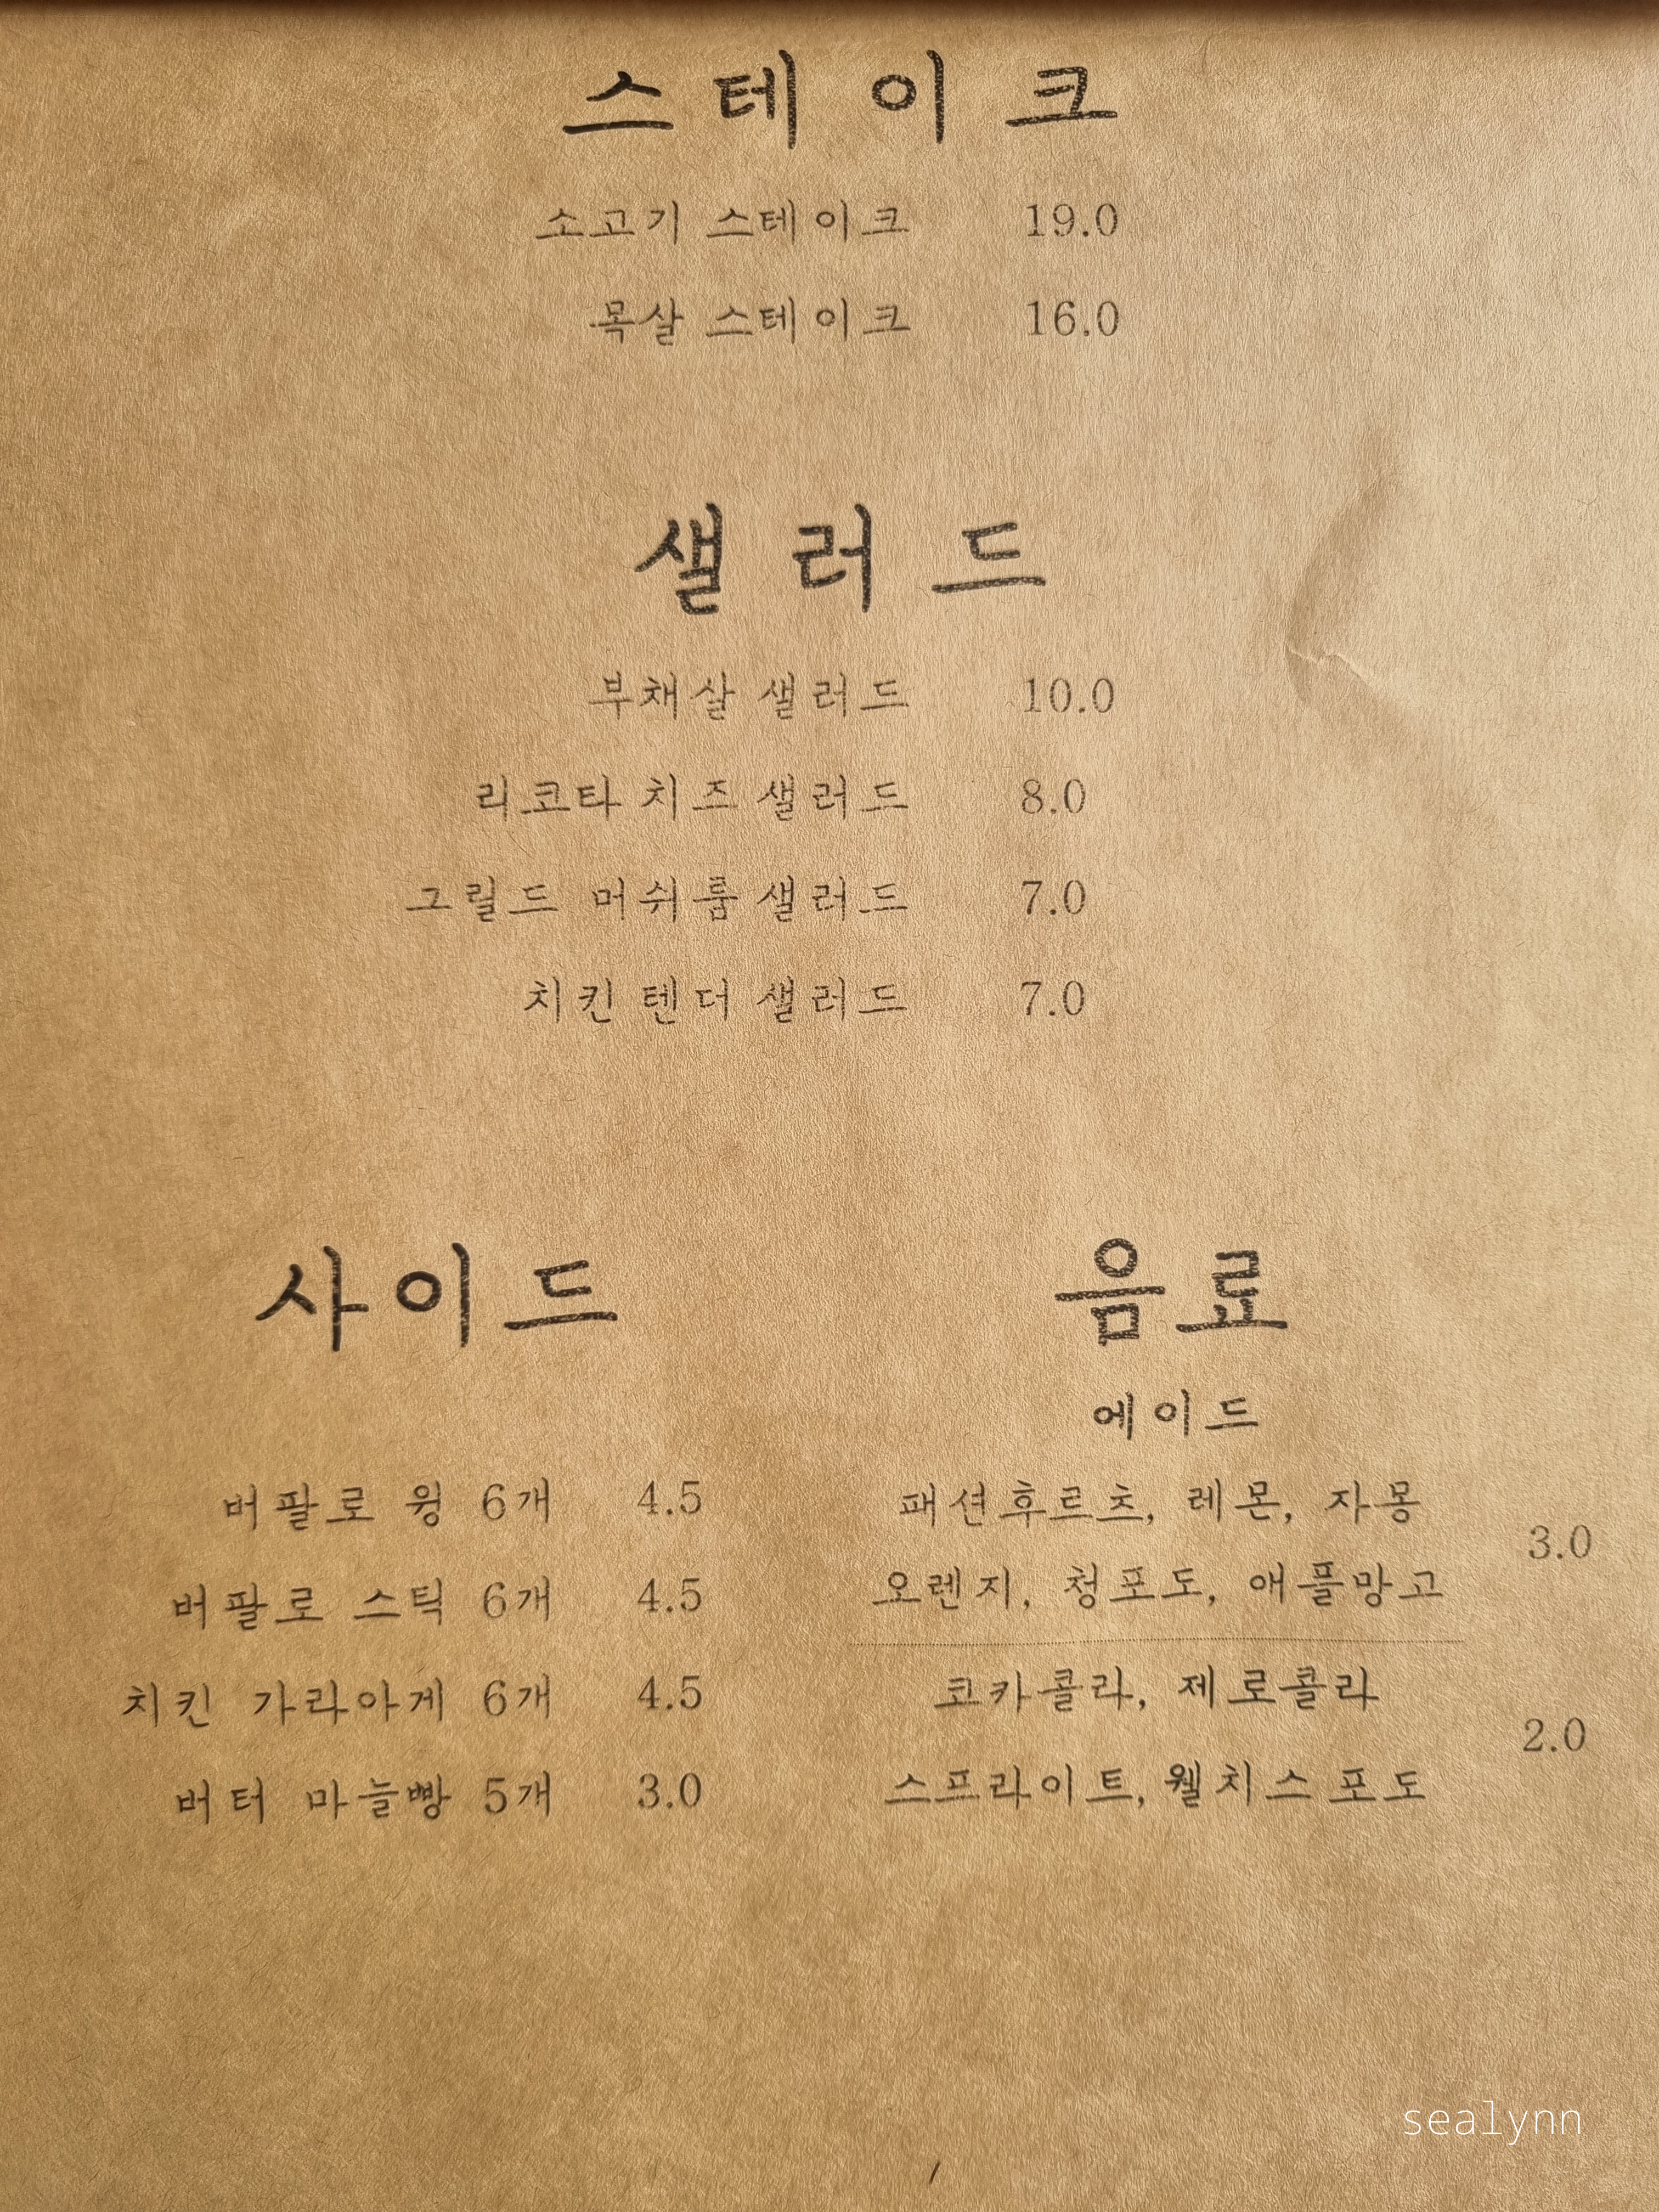 스테이크
소고기 스테이크 19.0
목살 스테이크 16.0
샐러드
부채살 샐러드 10.0
리코타 치즈 샐러드 8.0
그릴드 머쉬룸 샐러드 7.0
치킨 텐더 샐러드 7.0
사이드
버팔로 윙 6개 4.5
버팔로 스틱 6개 4.5
치킨 가라아게 6개 4.5
버터 마늘빵 5개 3.0
음료
에이드
패션후르츠, 레몬, 자몽
오렌지, 청포도, 애플망고
3.0
코카콜라, 제로콜라
스프라이트, 웰치스 포도
2.0
sealynn